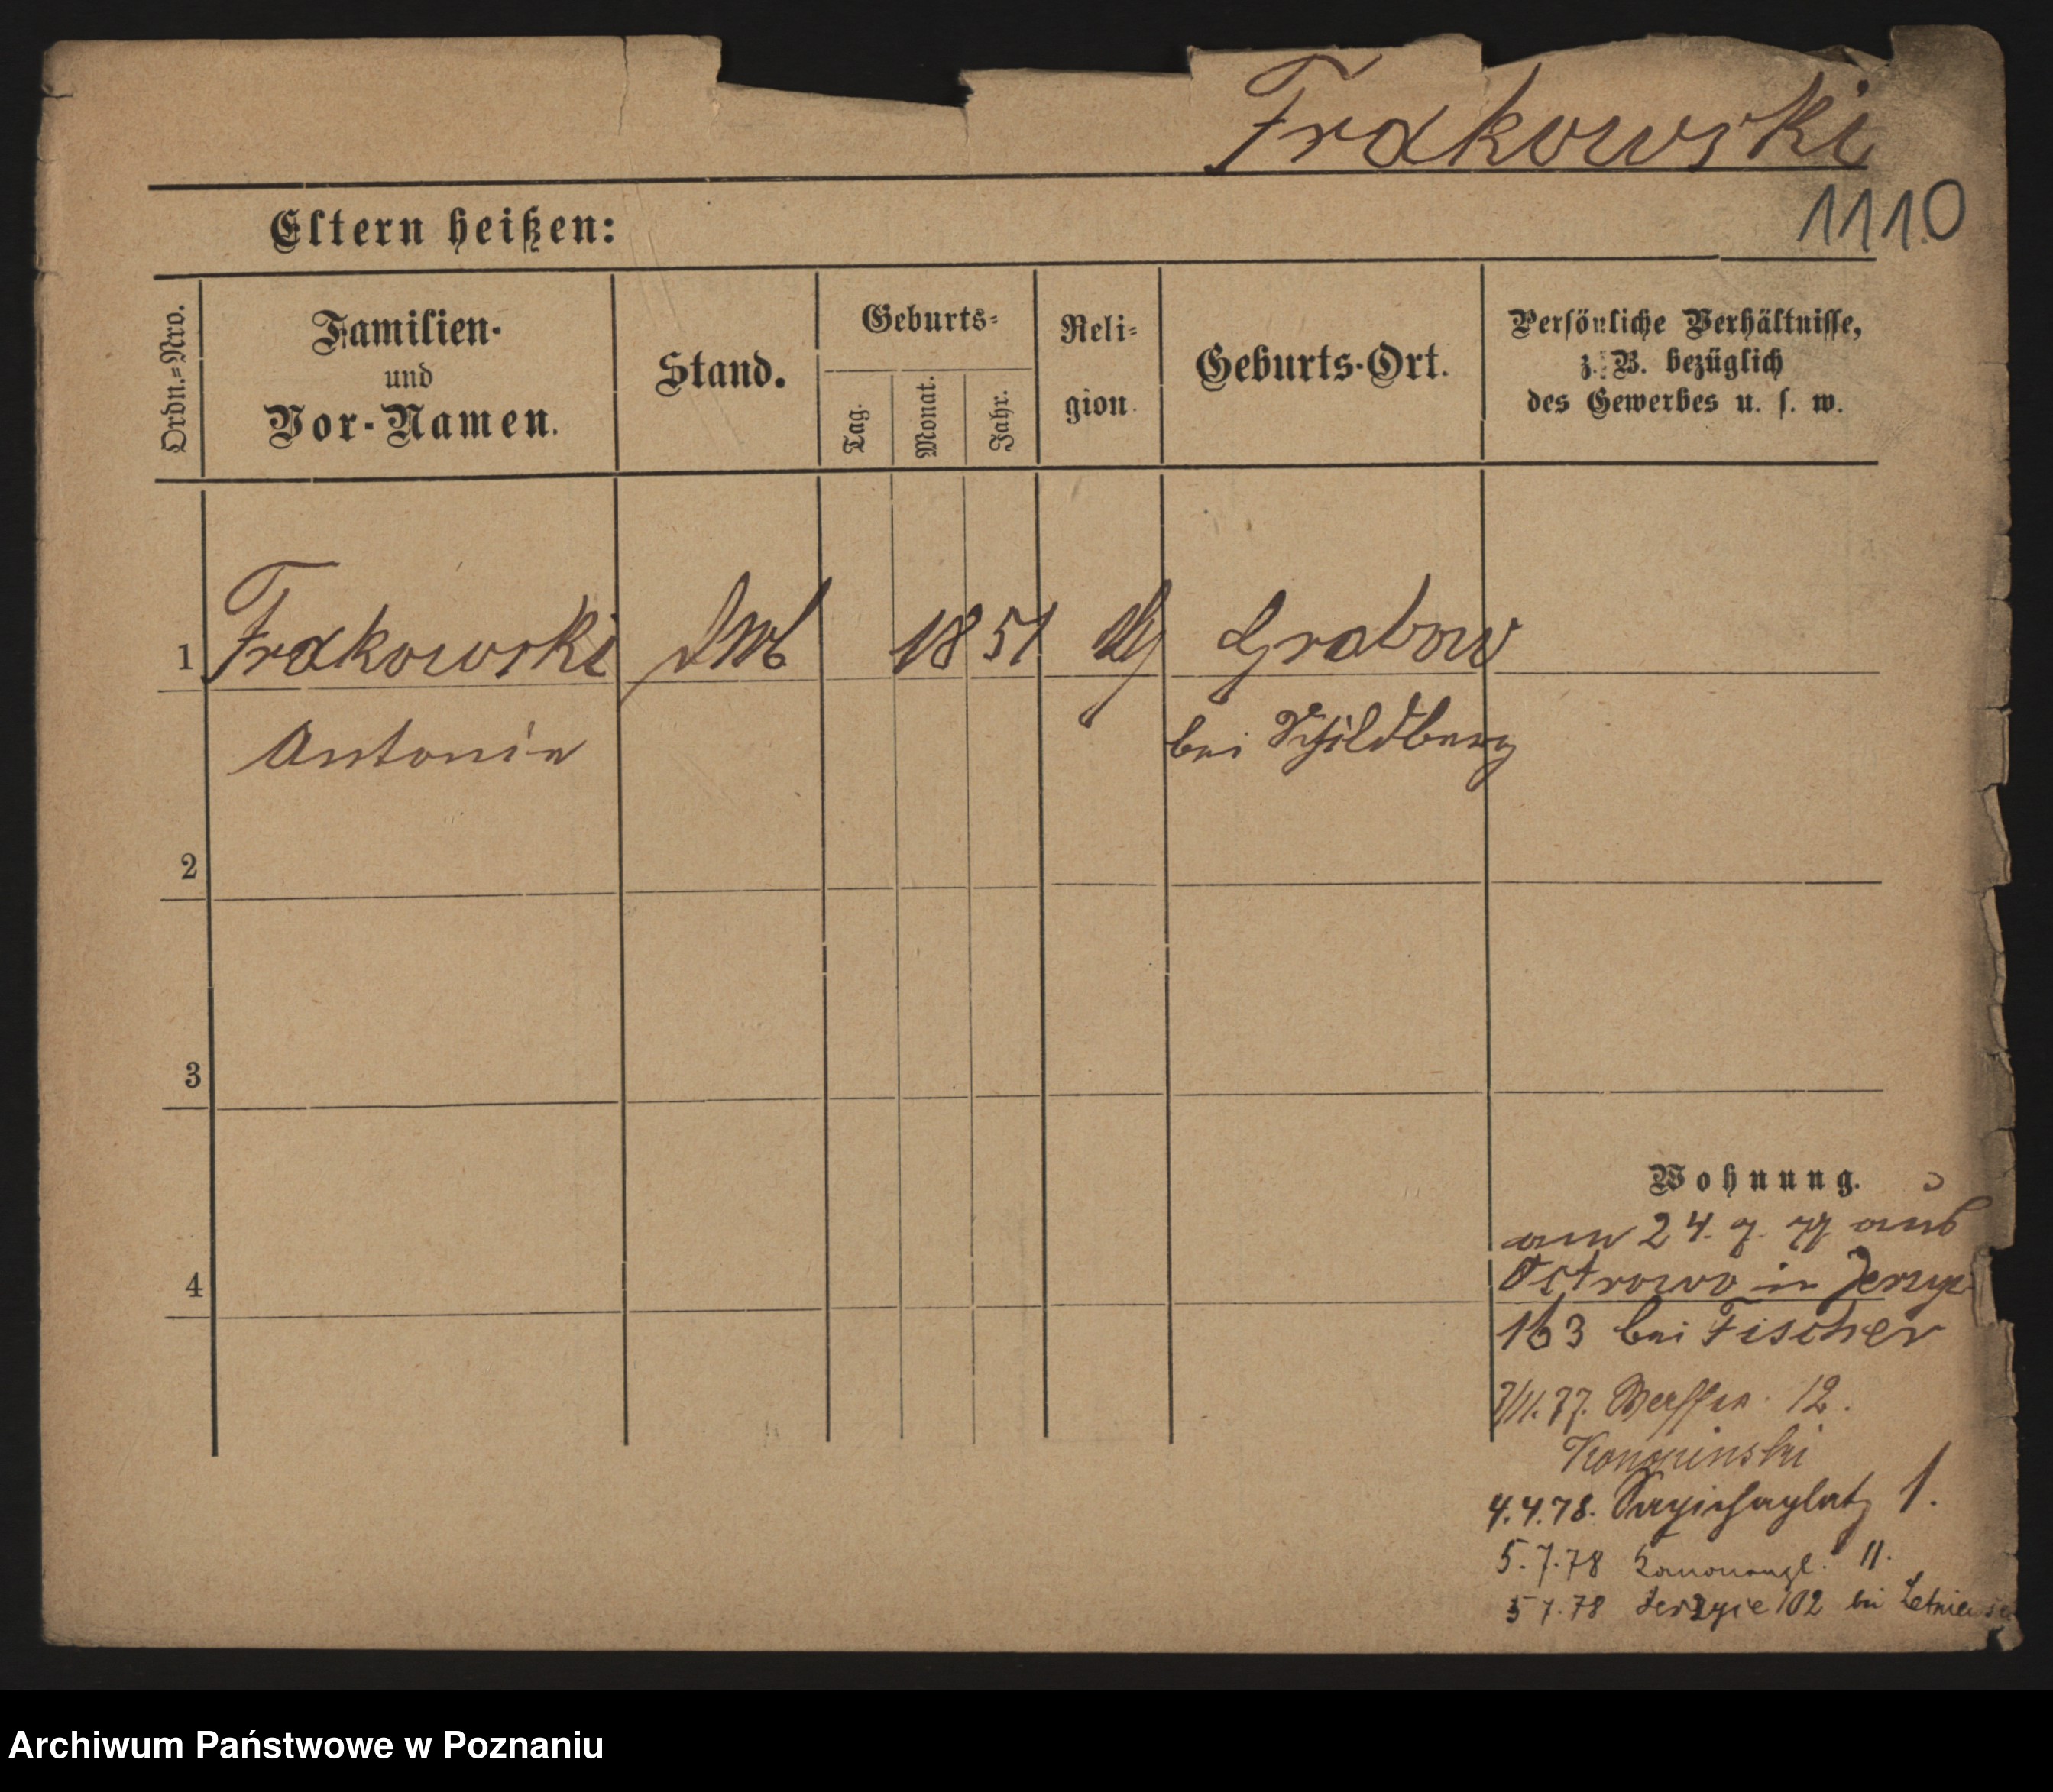 Frdkowski
1110
Eltern heißen:
Ordn.=Nro.
Familien-
und
Vor-Namen.
Stand.
Geburts=
Tag.
Monat.
Jahr.
Reli=
gion.
Geburts-Ort.
Persönliche Verhältnisse,
z. B. bezüglich
des Gewerbes u. s. w.
1 Frdkowski 1851 Grabow
Antonie bei Schildberg
2
3
4
Wohnung.
am 24. 7. 77 aus
Ostrowo in Jerzyce
163 bei Fischer
7/11. 77. 12.
Konopinski
4.4.78. Sapiehaplatz 1.
5.7.78 Kanonenpl. 11.
5 7.78 Jerzyce 102 bei
Archiwum Państwowe w Poznaniu